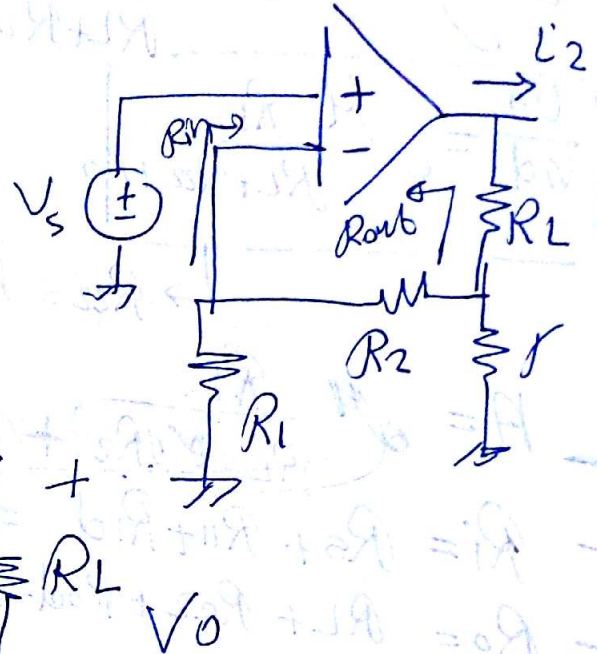 i2
+
Rin
-
Vs
±
Rout
RL
R2
r
R1
+
RL
Vo